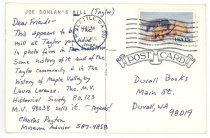 JOE BONLAN'S MILL (Taylor)
Dear Friends-
This appears to be a
mill at Taylor
in photo form a
Some history of it and of the
Taylor community is in the
history of Maple Valley by
Laura Lorenz. The M.V.
Historical Society P.O. 123
M.V. 98038 sells it. Regards
Charles Payton
Museum Advisor 587-4858
POST CARD
Duvall Books
Main St.
Duvall, WA
98019